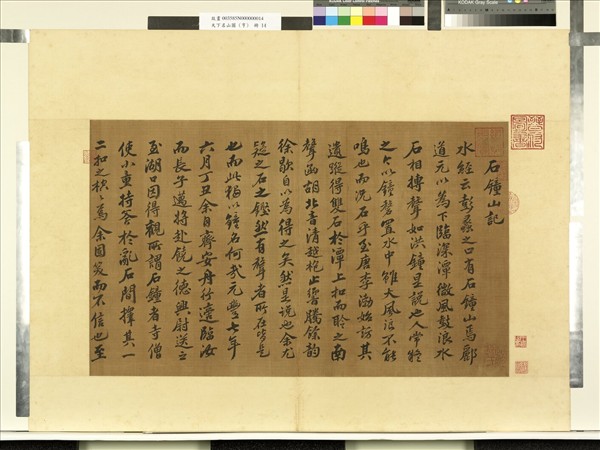 故畫003785N000000014
天下名山圖(亨) 冊 14
KODAK Gray Scale
石鐘山記
水經云彭蠡之口有石鐘山焉酈
道元以為下臨深潭微風鼓浪水
石相搏聲如洪鐘是說也人常疑
之今以鐘磬置水中雖大風浪不能
鳴也而況石乎至唐李渤始訪其
遺蹤得雙石於潭上扣而聆之南
聲函胡北音清越枹止響騰餘韻
徐歇自以為得之矣然是說也余尤
疑之石之鏗然有聲者所在皆是
也而此獨以鐘名何哉元豐七年
六月丁丑余自齊安舟行適臨汝
而長子邁將赴饒之德興尉送之
至湖口因得觀所謂石鐘者寺僧
使小童持斧於亂石間擇其一
二扣之硿硿焉余固笑而不信也至